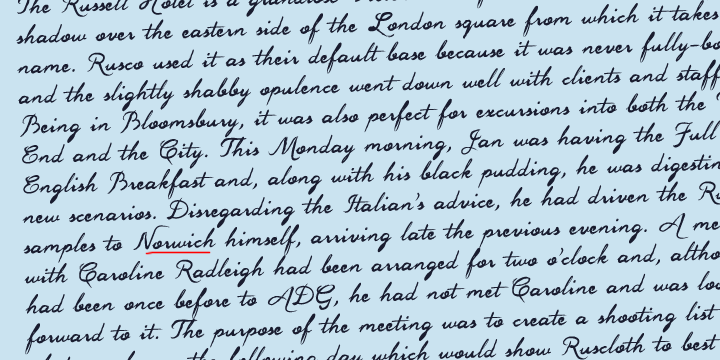 The Russell Hotel is a
shadow over the eastern side of the London square from which it takes
name. Rusco used it as their default base because it was never fully-bo
and the slightly shabby opulence went down well with clients and staff
Being in Bloomsbury, it was also perfect for excursions into both the
End and the City. This Monday morning, Jan was having the Full
English Breakfast and, along with his black pudding, he was digestin
new scenarios. Disregarding the Italian's advice, he had driven the Ru
samples to Norwich himself, arriving late the previous evening. A me
with Caroline Radleigh had been arranged for two o'clock and, altho
had been once before to ADG, he had not met Caroline and was loo
forward to it. The purpose of the meeting was to create a shooting list
the following day which would show Ruscloth to best